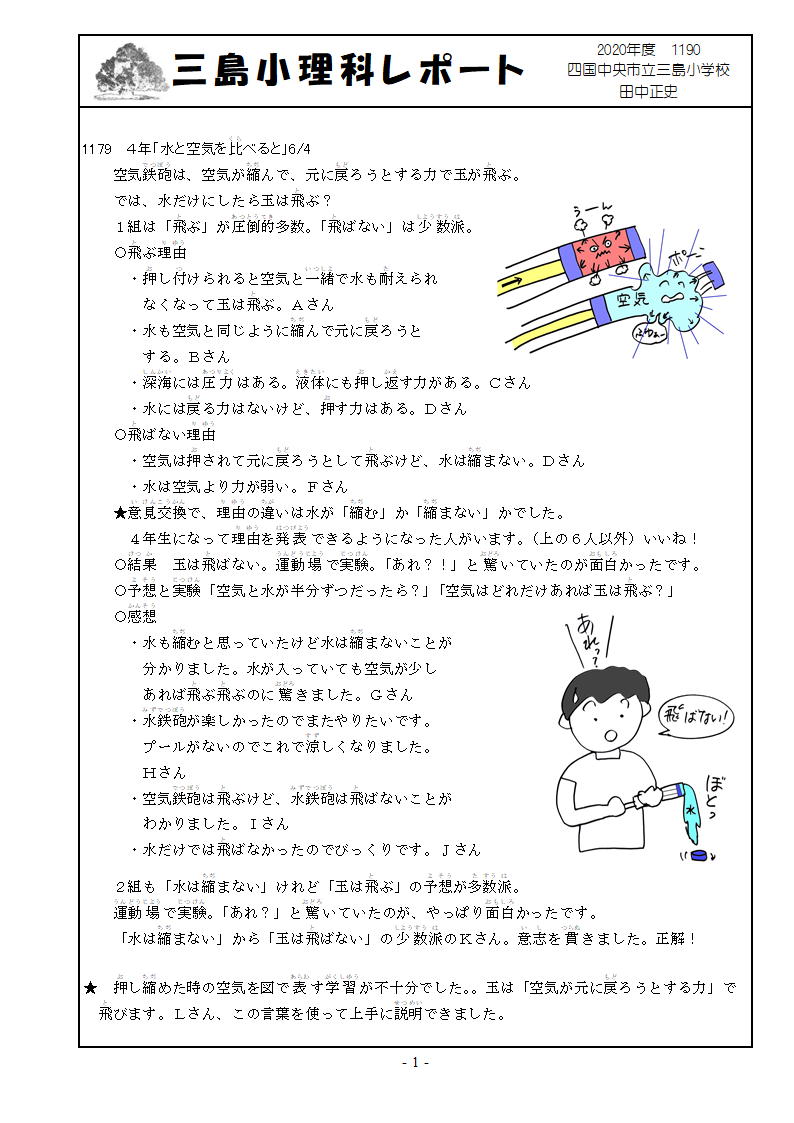 三島小理科レポート
2020年度　1190
四国中央市立三島小学校
田中正史
1179　４年「水と空気を比べると」6/4
空気鉄砲は、空気が縮んで、元に戻ろうとする力で玉が飛ぶ。
では、水だけにしたら玉は飛ぶ？
１組は「飛ぶ」が圧倒的多数。「飛ばない」は少数派。
○飛ぶ理由
・押し付けられると空気と一緒で水も耐えられ
なくなって玉は飛ぶ。Ａさん
・水も空気と同じように縮んで元に戻ろうと
する。Ｂさん
・深海には圧力はある。液体にも押し返す力がある。Ｃさん
・水には戻る力はないけど、押す力はある。Ｄさん
○飛ばない理由
・空気は押されて元に戻ろうとして飛ぶけど、水は縮まない。Ｄさん
・水は空気より力が弱い。Ｆさん
★意見交換で、理由の違いは水が「縮む」か「縮まない」かでした。
４年生になって理由を発表できるようになった人がいます。（上の６人以外）いいね！
○結果　玉は飛ばない。運動場で実験。「あれ？！」と驚いていたのが面白かったです。
○予想と実験「空気と水が半分ずつだったら？」「空気はどれだけあれば玉は飛ぶ？」
○感想
・水も縮むと思っていたけど水は縮まないことが
分かりました。水が入っていても空気が少し
あれば飛ぶ飛ぶのに驚きました。Ｇさん
・水鉄砲が楽しかったのでまたやりたいです。
プールがないのでこれで涼しくなりました。
Ｈさん
・空気鉄砲は飛ぶけど、水鉄砲は飛ばないことが
わかりました。Ｉさん
・水だけでは飛ばなかったのでびっくりです。Ｊさん
２組も「水は縮まない」けれど「玉は飛ぶ」の予想が多数派。
運動場で実験。「あれ？」と驚いていたのが、やっぱり面白かったです。
「水は縮まない」から「玉は飛ばない」の少数派のＫさん。意志を貫きました。正解！
★　押し縮めた時の空気を図で表す学習が不十分でした。。玉は「空気が元に戻ろうとする力」で
飛びます。Ｌさん、この言葉を使って上手に説明できました。
うーん
ポーン
空気
あれっ？
飛ばない！
ぼとっ
水
- 1 -